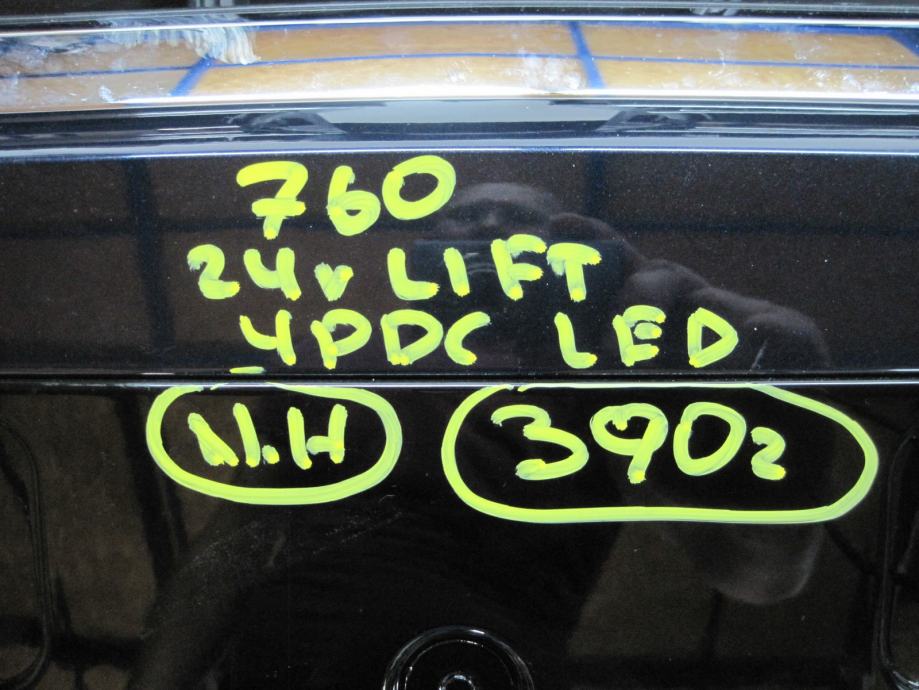 760
24v LIFT
4PDC LED
N.H 3902